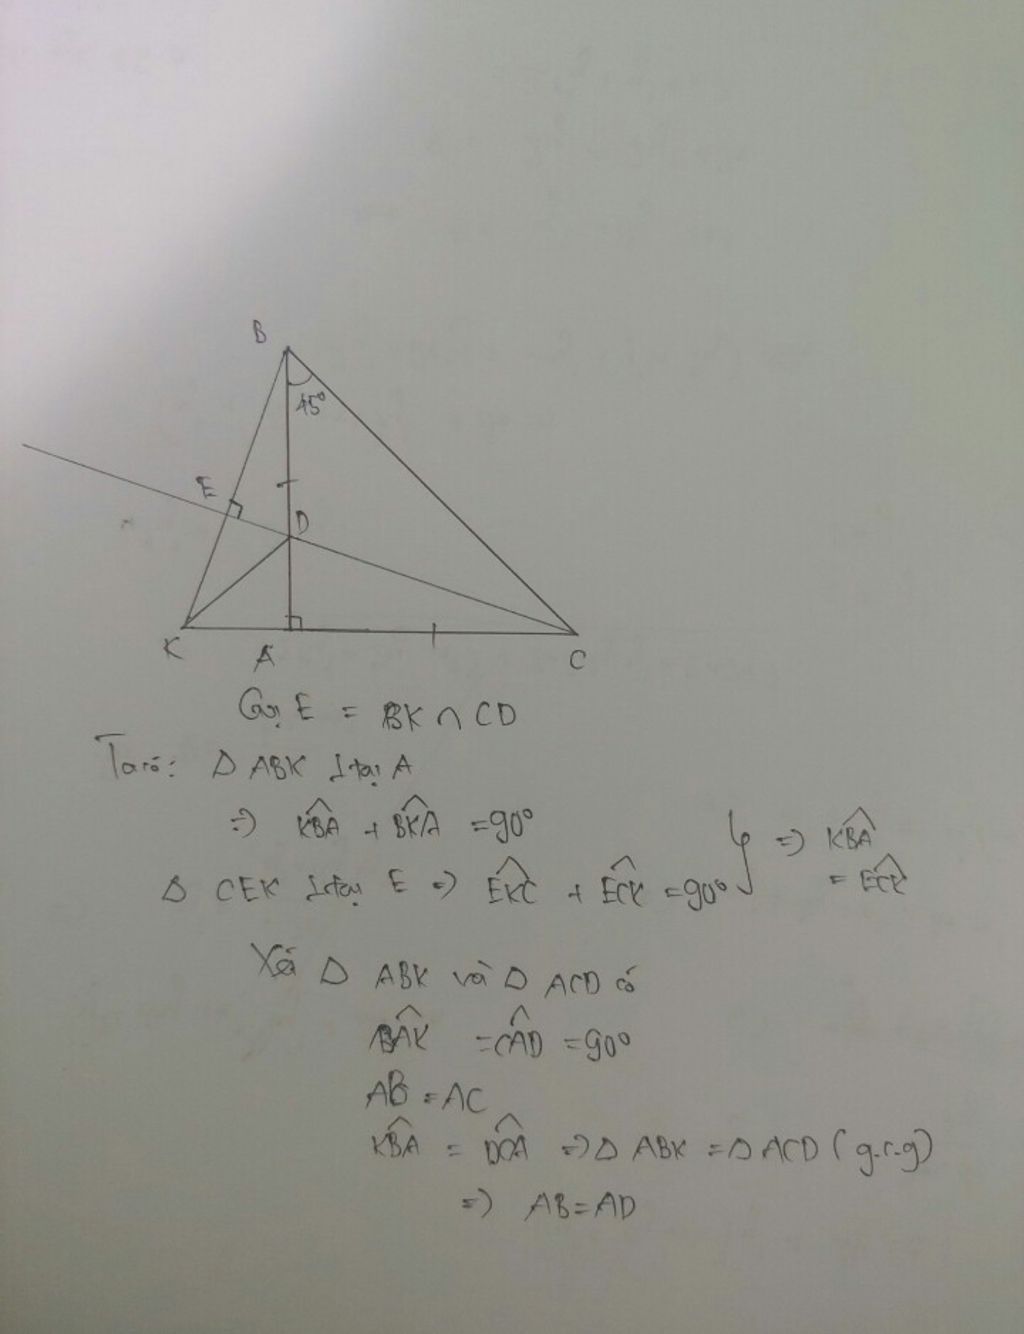 B
45°
E
D
K
A
C
Gọi E = BK ∩ CD
Ta có: Δ ABK ⊥ tại A
=> KBA^ + BKA^ = 90°
Δ CEK ⊥ tại E => EKC^ + ECK^ = 90° } => KBA^
= ECK^
Xét Δ ABK và Δ ACD có
BAK^ = CAD^ = 90°
AB = AC
KBA^ = DCA^ => Δ ABK = Δ ACD (g.c.g)
=> AB = AD